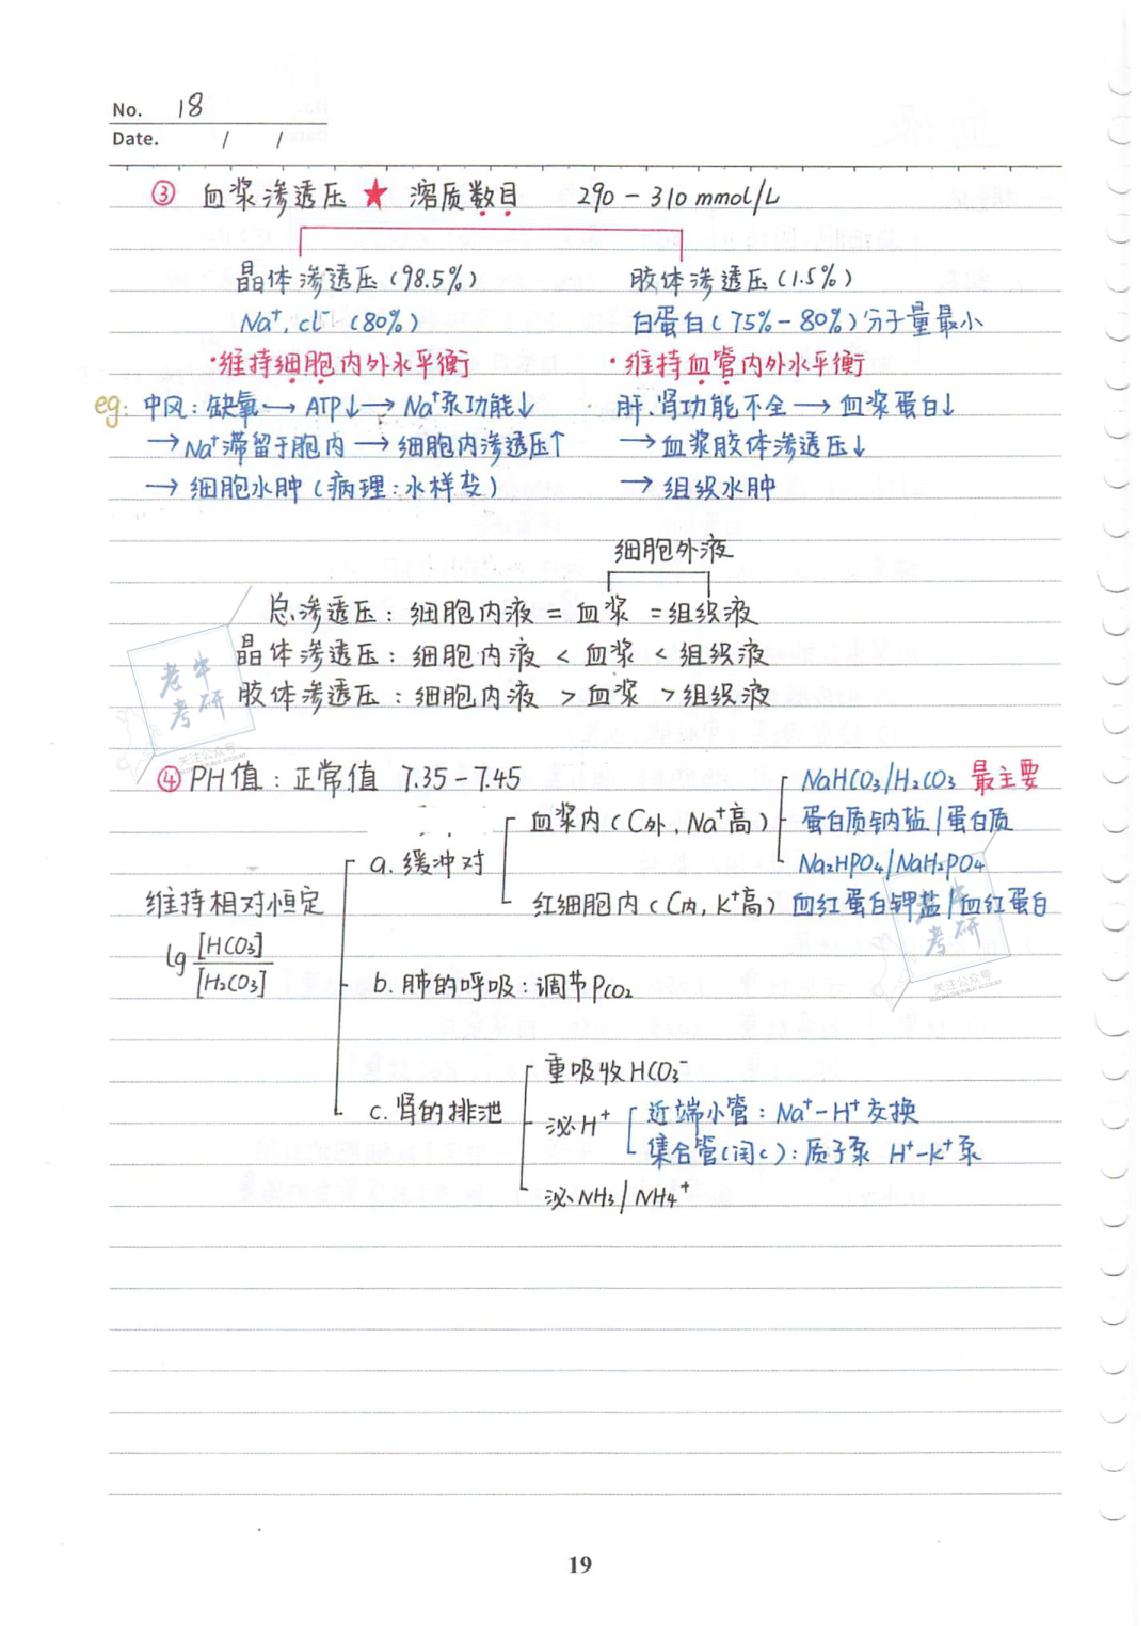 No. 18
Date. / /
③ 血浆渗透压 ★ 溶质数目 290-310 mmol/L
晶体渗透压(98.5%) 胶体渗透压(1.5%)
Na⁺, cl⁻ (80%) 白蛋白(75%-80%)分子量最小
·维持细胞内外水平衡 ·维持血管内外水平衡
eg: 中风:缺氧→ATP↓→Na⁺泵功能↓ 肝、肾功能不全→血浆蛋白↓
→Na⁺滞留于胞内→细胞内渗透压↑ →血浆胶体渗透压↓
→细胞水肿(病理:水样变) →组织水肿
细胞外液
总渗透压:细胞内液 = 血浆 = 组织液
晶体渗透压:细胞内液 < 血浆 < 组织液
胶体渗透压:细胞内液 > 血浆 > 组织液
老牛
考研
关注公众号
④ PH值:正常值 7.35-7.45
NaHCO₃/H₂CO₃ 最主要
血浆内(C外, Na⁺高) 蛋白质钠盐/蛋白质
a. 缓冲对 Na₂HPO₄/NaH₂PO₄
维持相对恒定 红细胞内(C内, K⁺高) 血红蛋白钾盐/血红蛋白
lg [HCO₃]/[H₂CO₃]
考研
关注公众号
b. 肺的呼吸:调节PCO₂
重吸收HCO₃⁻
c. 肾的排泄 泌H⁺ 近端小管:Na⁺-H⁺交换
集合管(闰c):质子泵 H⁺-K⁺泵
泌NH₃/NH₄⁺
19